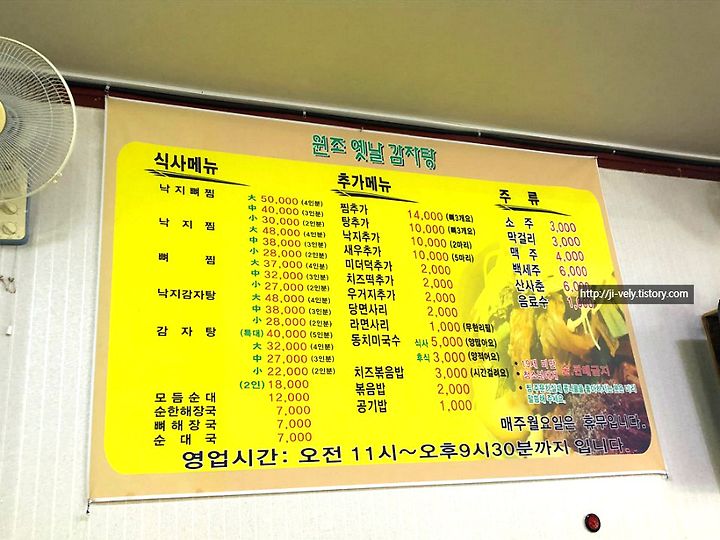 원조 옛날 감자탕
식사메뉴
낙지뼈찜 大 50,000 (4인분)
中 40,000 (3인분)
小 30,000 (2인분)
낙지찜 大 48,000 (4인분)
中 38,000 (3인분)
小 28,000 (2인분)
뼈찜 大 37,000 (4인분)
中 32,000 (3인분)
小 27,000 (2인분)
낙지감자탕 大 48,000 (4인분)
中 38,000 (3인분)
小 28,000 (2인분)
감자탕 (특대) 40,000 (5인분)
大 32,000 (4인분)
中 27,000 (3인분)
小 22,000 (2인분)
(2인) 18,000
모듬순대 12,000
순한해장국 7,000
뼈해장국 7,000
순대국 7,000
추가메뉴
찜추가 14,000 (뼈3개요)
탕추가 10,000 (뼈3개요)
낙지추가 10,000 (2마리)
새우추가 10,000 (5마리)
미더덕추가 2,000
치즈떡추가 2,000
우거지추가 2,000
당면사리 2,000
라면사리 1,000 (무한리필)
동치미국수 식사 5,000 (양많아요)
후식 3,000 (양적어요)
치즈볶음밥 3,000 (시간걸려요)
볶음밥 2,000
공기밥 1,000
주류
소주 3,000
막걸리 3,000
맥주 4,000
백세주 6,000
산사춘 6,000
음료수 1,000
http://ji-vely.tistory.com
19세 미만
청소년에게 술 판매금지
매주월요일은 휴무입니다.
영업시간: 오전 11시~오후9시30분까지 입니다.